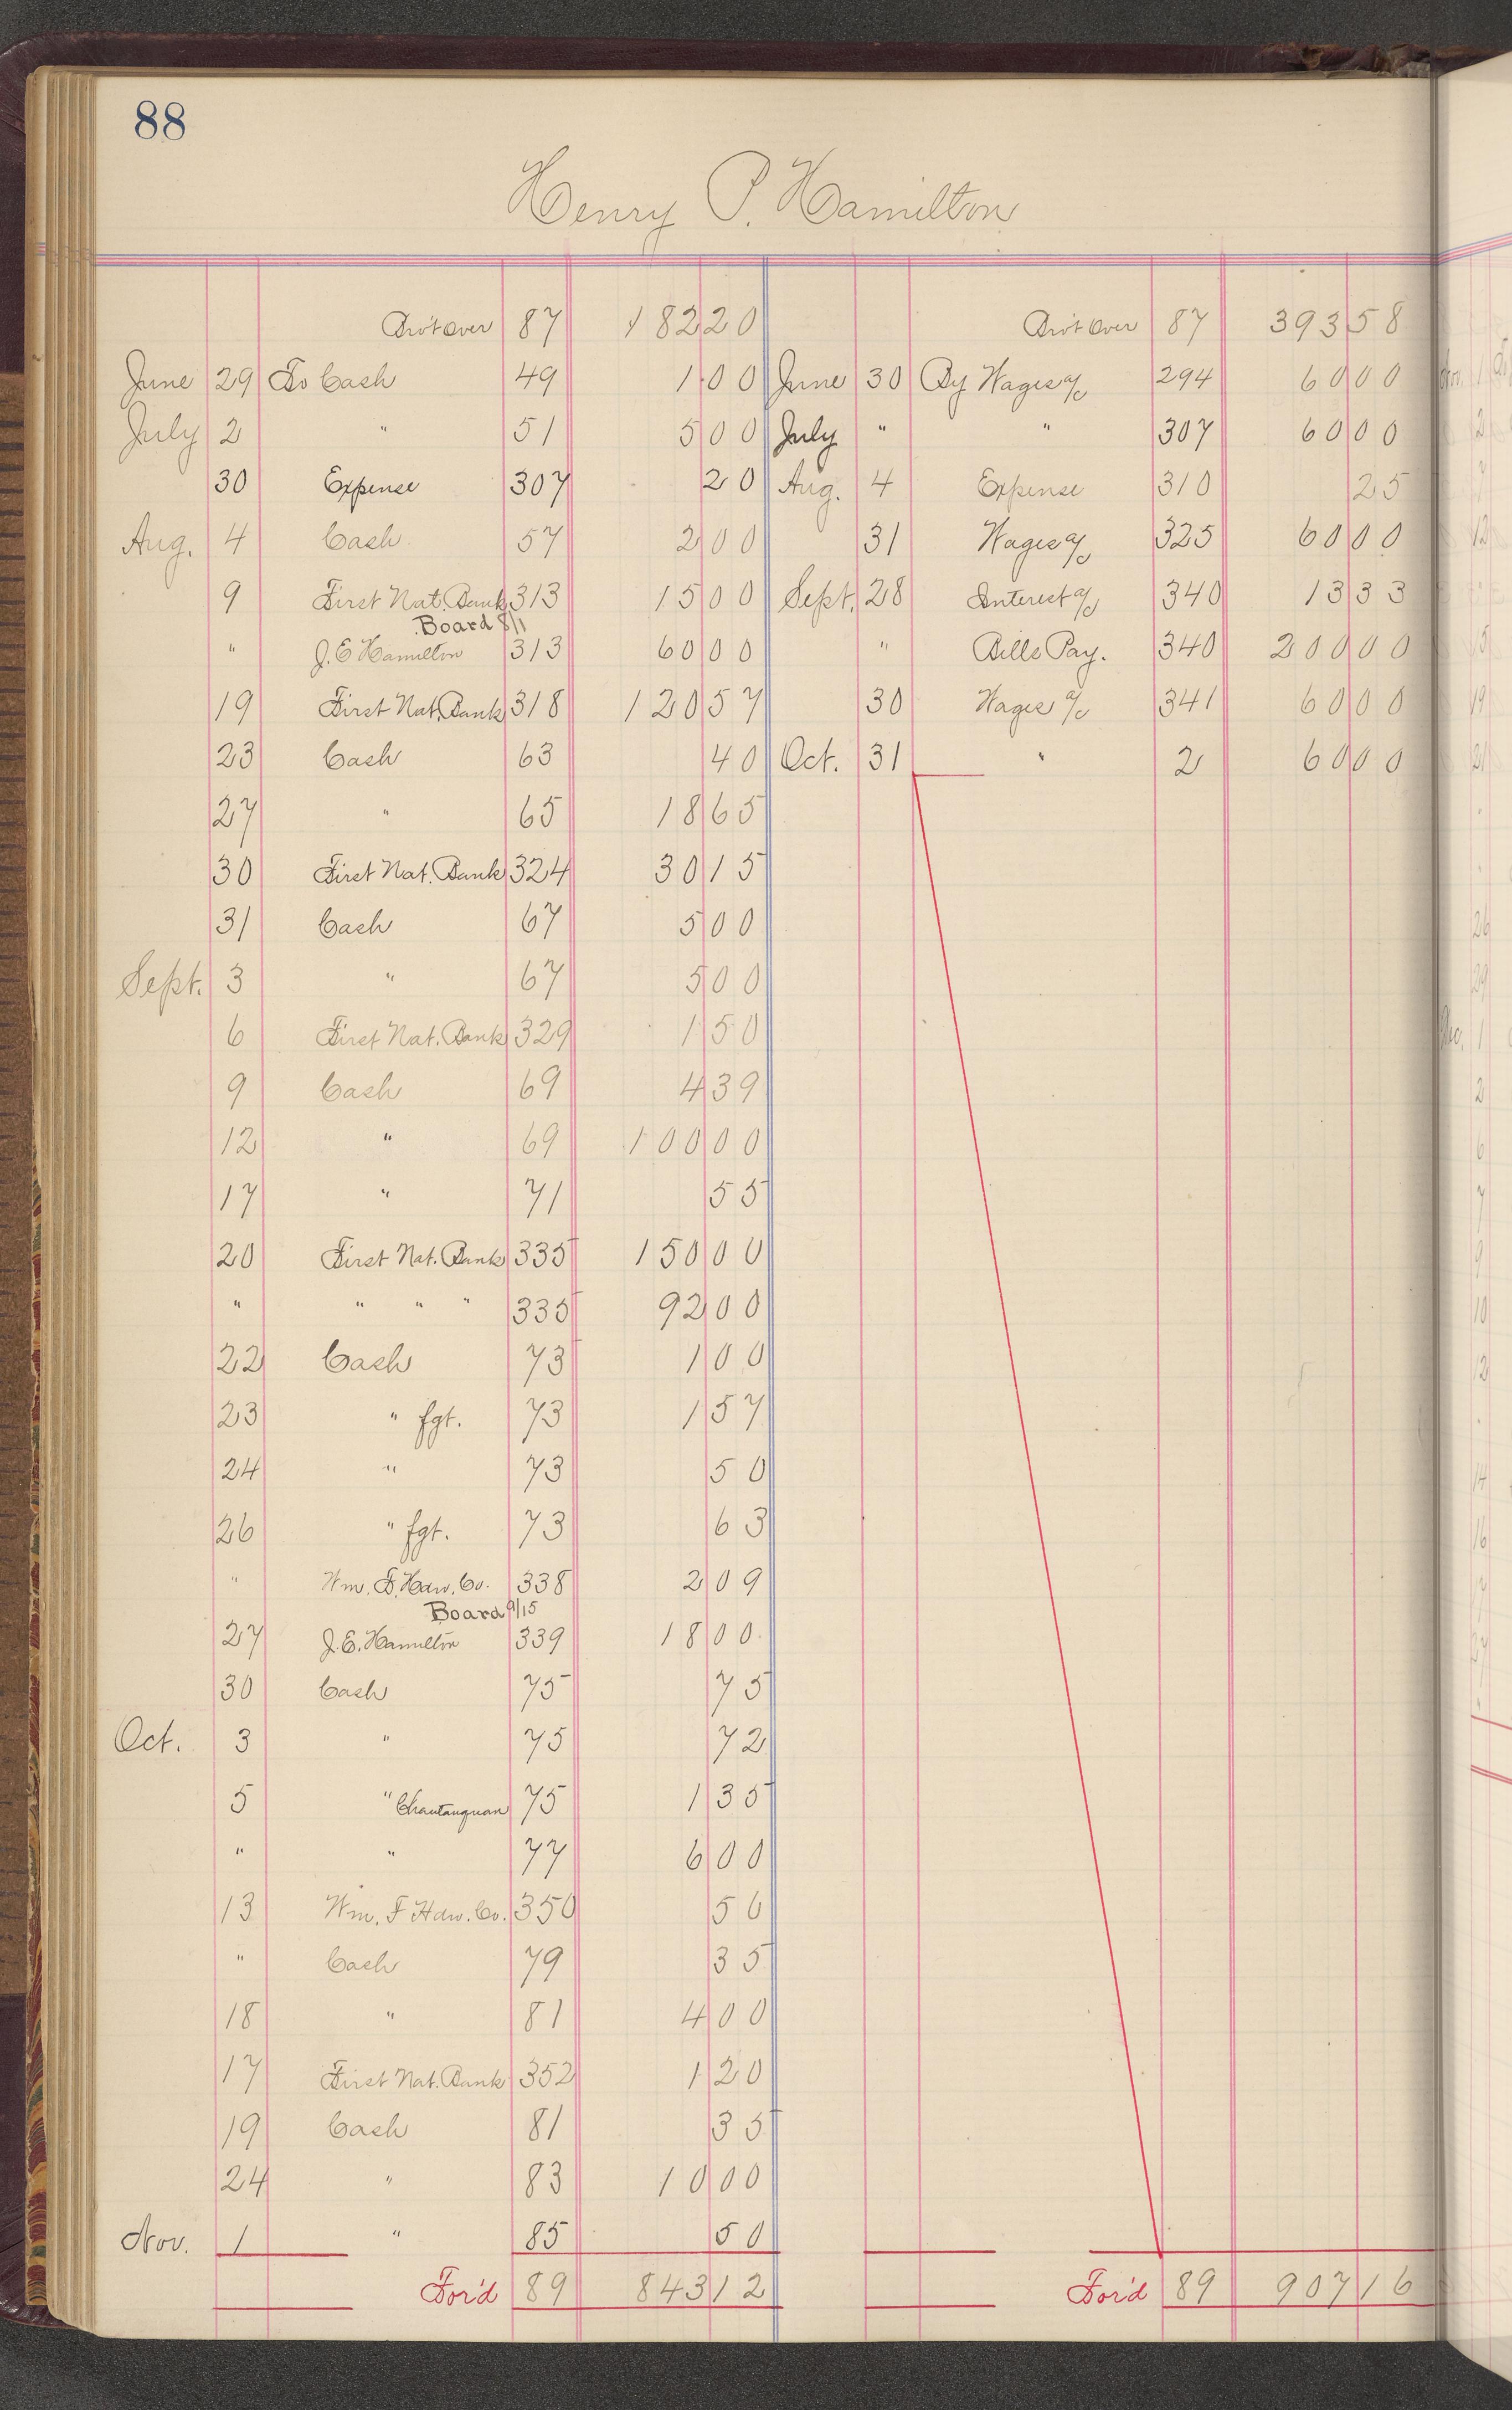 88
Henry P. Hamilton
Bro't over 87 182 20 Bro't over 87 393 58
June 29 To Cash 49 1 00 June 30 By Wages a/c 294 60 00
July 2 " 51 5 00 July " " 307 60 00
30 Expense 307 20 Aug. 4 Expense 310 25
Aug. 4 Cash 57 2 00 31 Wages a/c 325 60 00
9 First Nat. Bank 313 15 00 Sept. 28 Interest a/c 340 13 33
Board 8/1
" J. E. Hamilton 313 60 00 " Bills Pay. 340 200 00
19 First Nat. Bank 318 120 57 30 Wages a/c 341 60 00
23 Cash 63 40 Oct. 31 " 2 60 00
27 " 65 18 65
30 First Nat. Bank 324 30 15
31 Cash 67 5 00
Sept. 3 " 67 5 00
6 First Nat. Bank 329 1 50
9 Cash 69 4 39
12 " 69 100 00
17 " 71 55
20 First Nat. Bank 335 150 00
" " " " 335 92 00
22 Cash 73 1 00
23 " fgt. 73 1 57
24 " 73 50
26 " fgt. 73 63
" Wm. F. Hdw. Co. 338 2 09
Board 9/15
27 J. E. Hamilton 339 18 00
30 Cash 75 75
Oct. 3 " 75 72
5 " Chautauquan 75 1 35
" " 77 6 00
13 Wm. F Hdw. Co. 350 50
" Cash 79 35
18 " 81 4 00
17 First Nat. Bank 352 1 20
19 Cash 81 35
24 " 83 10 00
Nov. 1 " 85 50
For'd 89 843 12 For'd 89 907 16